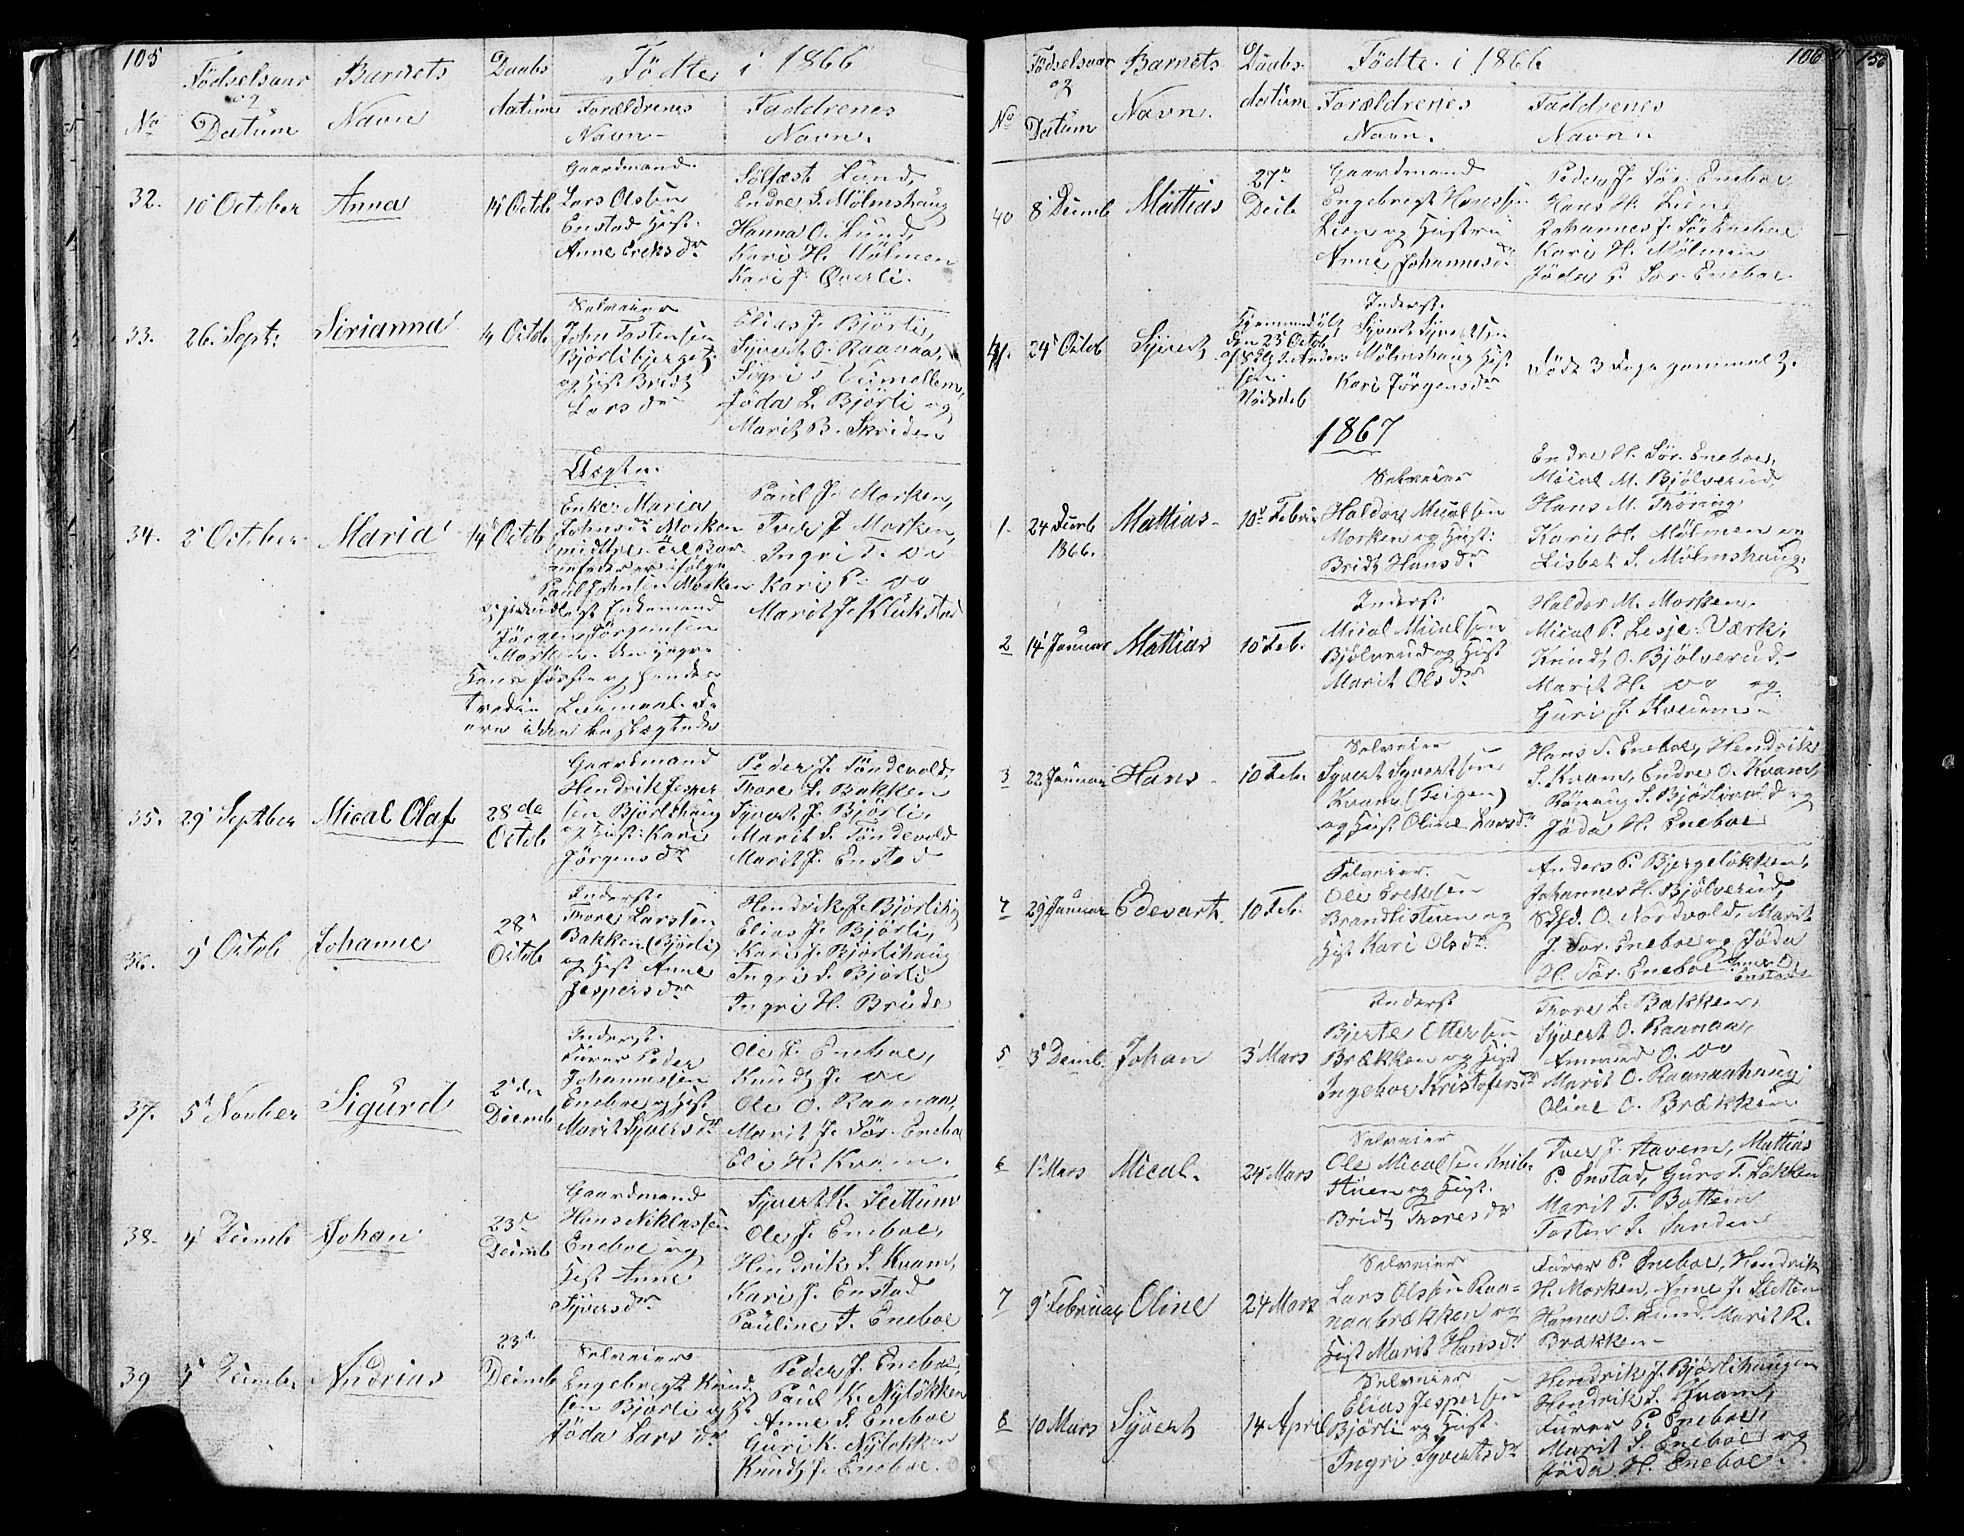 105
Födte i 1866
No
Födselsaar
og
Datum
Barnets
Navn
Daabs
datum
Forældrenes
Navn
Faddrenes
Navn.
32.
10 October
Anna
14 Octob
Gaardmand
Lars Olsen
Enstad Hust:
Anne Ereksdr
Endre S. Mölmshaug
Hanna O. Lund,
Kari H. Mölmen
Kari J. Øverli.
33.
26 Sept:
Sirianna
4 Octob
Selveier
John Tostensen
Björlibjerget
og Hust Brit
Larsdr
Elias J. Björli,
Syvert O. Raanaa,
Jöda L. Björli og
Marit B. Skriden
34.
2 October
Maria
14 Octob
Enke Maria
Johnsdr Morken
Paul Johnsen Morken
Jörgen Jörgensen
Morken
Paul J. Morken,
Iver J. Morken,
Ingri do
Kari P. do
Marit J. Klukstad
35.
29 Septber
Mical Olaf
28de
Octob
Gaardmand
Hendrik Jesper
sen Björlihaug
og Hust: Kari
Jörgensdr
Peder J. Töndevold,
Thore L. Bakken
Syvert J. Björli,
Marit S. Töndevold
Marit J. Enstad
36.
9 Octob
Johanne
28
Octob
Inderst:
Thore Larssen
Bakken (Björli)
og Hust Anne
Jespersdr
Hendrik J. Björlihg
Elias J. Björli,
Kari J. Björlihaug
Ingri S. Björli
Ingri H. Brude
37.
5 Novber
Sigurd
2den
Decemb
Inderst:
Furer Peder
Johannessen
Eneboe og Hust
Marit Syversdr
Ole J. Eneboe,
Knud J. do
Ole O. Raanaa,
Marit J. Sör. Eneboe
Eli H. Kvam.
38.
4 Decemb
Johan
23
Decemb
Gaardmand
Hans Niklassen
Eneboe og
Hust Anne
Syversdr
Syvert K. Slettum
Ole J. Eneboe,
Hendrik S. Kvam,
Kari J. Enstad
Pauline A. Eneboe
39
Decemb
Andrias
23
Decemb
Selveier
Engebregt Knud
sen Björli og Hst
Jöda Larsdr
Peder J. Eneboe,
Paul K. Nylökken
Anne S. Eneboe
Guri K. Nylökken
Knud J. Eneboe.
106
Födte i 1866
No
Födselsaar
og
Datum
Barnets
Navn.
Daabs
datum
Forældrenes
Navn.
Faddrenes
Navn.
40
8 Decemb
Mattias
27
Decb
Gaardmand
Engebregt Hanssen
Lien og Hustru
Anne Johannesdr
Peder J. Sör. Eneboe
Hans H. Lien,
Johannes J. Sör Eneboe
Kari H. Mölmen
Jöda P. Sör. Eneboe.
41.
24 Octob
Syvert
Hjemmedöbt
den 25 Octob
Inderst:
Syvert Syvertsen
Mölmshaug Hust
Kari Jörgensdr
Döde 3 Dage gammelt.
1867
1.
24 Decmb
1866.
Mattias
10 Febru
Selveier
Haldor Micalsen
Morken og Hust:
Brit Hansdr
Endre H. Sör. Eneboe,
Mical M. Bjölverud
Hans M. Thöring
Kari H. Mölmen og
Lisbet S. Mölmshaug.
2
14 Januar
Mattias
10 Feb.
Inderst:
Mical Micalsen
Bjölverud og Hust
Marit Olsdr
Haldor M. Morken,
Mical P. Lesje-Værk,
Knud O. Bjölverud
Marit H. do og
Guri J. Kveum.
3
22 Januar
Hans
10 Feb.
Selveier
Syvert Syvertsen
Kvam (Teigen)
og Hust Oline Larsdr
Hans S. Eneboe, Hendrik
S. Kvam, Endre O. Kvam,
Rönnaug S. Björlirud og
Jöda H. Eneboe
4
29 Januar
Edevart.
10 Feb.
Selveier
Ole Ereksen
Brandlistuen og
Hust Kari Olsdr.
Anders P. Bjergelökken,
Johannes H. Bjölverud,
O. Nordvold, Marit
J. Sör. Eneboe og Jöda
H. Sör. Eneboe
Enstad
5
3 Decmb
Johan
3 Mars
Inderst
Bjerte Ottersen
Brækken og Hust
Ingeboe Kristofersdr
Thore L. Bakken,
Syvert O. Raanaa,
Amund O. do
Marit O. Raanaahaug
Oline O. Brækken
6
1 Mars
Mical.
24 Mars
Selveier
Ole Micalsen
Stuen og Hust.
Brit Thoresdr
Iver J. Havem, Mattias
P. Enstad, Guri T. Lökken
Marit T. Bottem
Tosten S. Sanden
7
9 Februar
Oline
24 Mars
Selveier
Lars Olssen Raa-
naabrækken og
Hust Marit Hansdr
Furer P. Eneboe, Hendrik
H. Morken, Anne J. Sletten
Hanna O. Lund, Marit R.
Brækken
8
10 Mars
Syvert
14 April
Selveier
Elias Jespersen
Björli og Hust.
Ingri Syvertsdr
Hendrik J. Björlihaugen
Hendrik S. Kvam,
Furer P. Eneboe,
Marit S. Eneboe og
Jöda H. Eneboe.